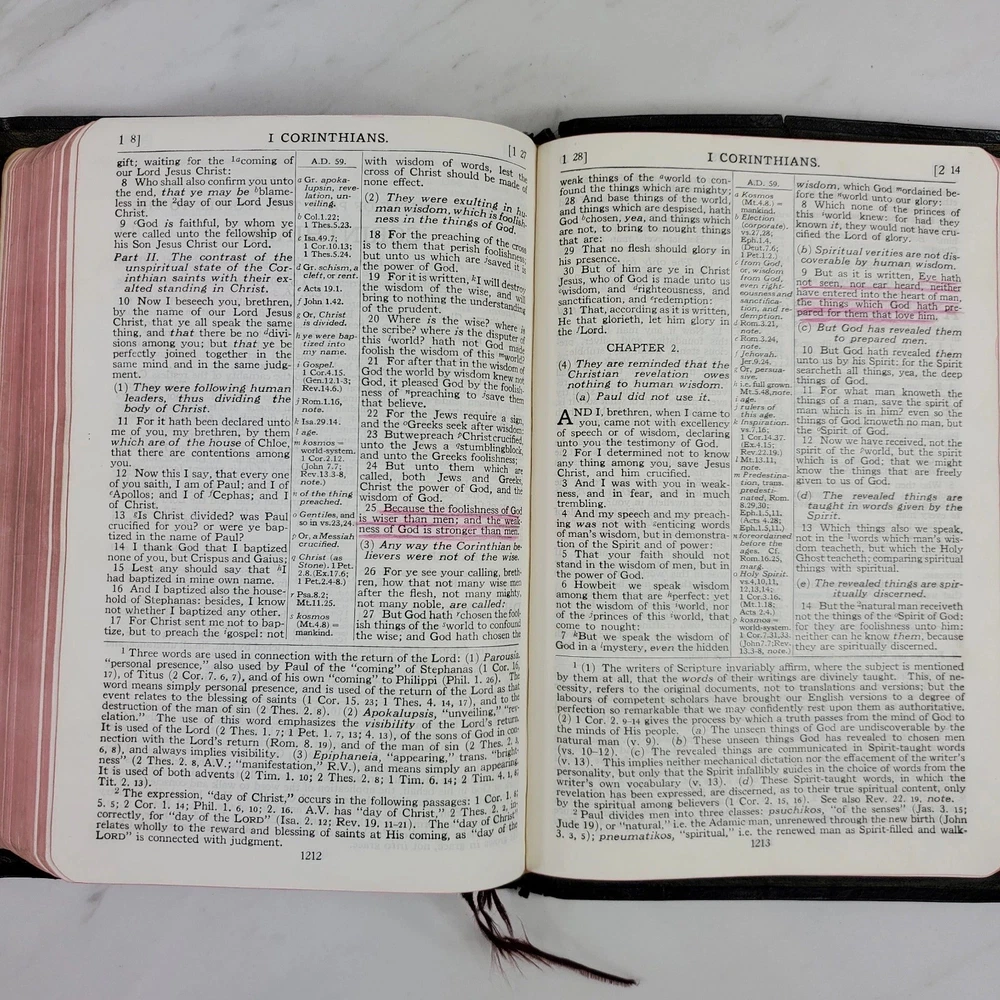 1 8]
I CORINTHIANS.
[1 27
gift; waiting for the 1acoming of
our Lord Jesus Christ:
8 Who shall also confirm you unto
the end, that ye may be bblame-
less in the 2day of our Lord Jesus
Christ.
9 cGod is faithful, by whom ye
were called unto the fellowship of
his Son Jesus Christ our Lord.
Part II. The contrast of the
unspiritual state of the Cor-
inthian saints with their ex-
alted standing in Christ.
10 Now I beseech you, brethren,
by the name of our Lord Jesus
Christ, that ye all speak the same
thing, and that there be no ddivi-
sions among you; but that ye be
perfectly joined together in the
same mind and in the same judg-
ment.
(1) They were following human
leaders, thus dividing the
body of Christ.
11 For it hath been declared unto
me of you, my brethren, by them
which are of the house of Chloe,
that there are contentions among
you.
12 Now this I say, that every one
of you saith, I am of Paul; and I of
eApollos; and I of fCephas; and I of
Christ.
13 gIs Christ divided? was Paul
crucified for you? or were ye bap-
tized in the name of Paul?
14 I thank God that I baptized
none of you, but Crispus and Gaius;
15 Lest any should say that hI
had baptized in mine own name.
16 And I baptized also the house-
hold of Stephanas: besides, I know
not whether I baptized any other.
17 For Christ sent me not to bap-
tize, but to preach the igospel: not
A.D. 59.
a Gr. apoka-
lupsin, reve-
lation, un-
veiling.
b Col.1.22;
1 Thes.5.23.
c Isa.49.7;
1 Cor.10.13;
1 Thes.5.24.
d Gr. schism, a
cleft, or rent.
e Acts 19.1.
f John 1.42.
g Or, Christ
is divided.
h ye were bap-
tized into
my name.
i Gospel.
1 Cor.4.15.
(Gen.12.1-3;
Rev.14.6.)
j Rom.1.16,
note.
k Isa.29.14.
l age.
m kosmos =
world-system.
1 Cor.2.12.
(John 7.7;
Rev.13.3-8,
note.)
n of the thing
preached.
o Gentiles, and
so in vs.23,24.
p Or, a Messiah
crucified.
q Christ (as
Stone). 1 Pet.
2.8. (Ex.17.6;
1 Pet.2.4-8.)
r Psa.8.2;
Mt.11.25.
s kosmos
(Mt.4.8) =
mankind.
with wisdom of words, lest the
cross of Christ should be made of
none effect.
(2) They were exulting in hu-
man wisdom, which is foolish-
ness in the things of God.
18 For the preaching of the cross
is to them that perish foolishness;
but unto us which are jsaved it is
the power of God.
19 For it is written, kI will destroy
the wisdom of the wise, and will
bring to nothing the understanding
of the prudent.
20 Where is the wise? where is
the scribe? where is the disputer of
this lworld? hath not God made
foolish the wisdom of this mworld?
21 For after that in the wisdom of
God the world by wisdom knew not
God, it pleased God by the foolish-
ness of npreaching to jsave them
that believe.
22 For the Jews require a sign,
and the oGreeks seek after wisdom:
23 But we preach pChrist crucified,
unto the Jews a qstumblingblock,
and unto the Greeks foolishness;
24 But unto them which are
called, both Jews and Greeks,
Christ the power of God, and the
wisdom of God.
25 Because the foolishness of God
is wiser than men; and the weak-
ness of God is stronger than men.
(3) Any way the Corinthian be-
lievers were not of the wise.
26 For ye see your calling, breth-
ren, how that not many wise men
after the flesh, not many mighty,
not many noble, are called:
27 But God hath rchosen the fool-
ish things of the sworld to confound
the wise; and God hath chosen the
1 Three words are used in connection with the return of the Lord: (1) Parousia,
"personal presence," also used by Paul of the "coming" of Stephanas (1 Cor. 16.
17), of Titus (2 Cor. 7. 6, 7), and of his own "coming" to Philippi (Phil. 1. 26). The
word means simply personal presence, and is used of the return of the Lord as that
event relates to the blessing of saints (1 Cor. 15. 23; 1 Thes. 4. 14, 17), and to the
destruction of the man of sin (2 Thes. 2. 8). (2) Apokalupsis, "unveiling," "rev-
elation." The use of this word emphasizes the visibility of the Lord's return.
It is used of the Lord (2 Thes. 1. 7; 1 Pet. 1. 7, 13; 4. 13), of the sons of God in con-
nection with the Lord's return (Rom. 8. 19), and of the man of sin (2 Thes. 2. 3,
6, 8), and always implies visibility. (3) Epiphaneia, "appearing," trans. "bright-
ness" (2 Thes. 2. 8, A.V.; "manifestation," R.V.), and means simply an appearing.
It is used of both advents (2 Tim. 1. 10; 2 Thes. 2. 8; 1 Tim. 6. 14; 2 Tim. 4. 1, 8;
Tit. 2. 13).
2 The expression, "day of Christ," occurs in the following passages: 1 Cor. 1. 8;
5. 5; 2 Cor. 1. 14; Phil. 1. 6, 10; 2. 16. A.V. has "day of Christ," 2 Thes. 2. 2, in-
correctly, for "day of the LORD" (Isa. 2. 12; Rev. 19. 11-21). The "day of Christ"
relates wholly to the reward and blessing of saints at His coming, as "day of the
LORD" is connected with judgment.
1212
1 28]
I CORINTHIANS.
[2 14
weak things of the aworld to con-
found the things which are mighty;
28 And base things of the world,
and things which are despised, hath
God bchosen, yea, and things which
are not, to bring to nought things
that are:
29 That no flesh should glory in
his presence.
30 But of him are ye in Christ
Jesus, who of God is made unto us
cwisdom, and drighteousness, and
sanctification, and eredemption:
31 That, according as it is written,
He that glorieth, let him glory in
the fLord.
CHAPTER 2.
(4) They are reminded that the
Christian revelation owes
nothing to human wisdom.
(a) Paul did not use it.
AND I, brethren, when I came to
you, came not with excellency
of speech or of wisdom, declaring
unto you the testimony of God.
2 For I determined not to know
any thing among you, save Jesus
Christ, and him crucified.
3 And I was with you in weak-
ness, and in fear, and in much
trembling.
4 And my speech and my preach-
ing was not with genticing words
of man's wisdom, but in demonstra-
tion of the Spirit and of power:
5 That your faith should not
stand in the wisdom of men, but in
the power of God.
6 Howbeit we speak wisdom
among them that are hperfect: yet
not the wisdom of this iworld, nor
of the jprinces of this iworld, that
come to nought:
7 kBut we speak the wisdom of
God in a lmystery, even the hidden
A.D. 59.
a Kosmos
(Mt.4.8.) =
mankind.
b Election
(corporate).
vs.27,28;
Eph.1.4.
(Deut.7.6;
1 Pet.1.2.)
c from God,
or, wisdom
from God,
even right-
eousness and
sanctifica-
tion, and re-
demption.
d Rom.3.21,
note.
e Rom.3.24,
note.
f Jehovah.
Jer.9.24.
g Or, persua-
sive.
h i.e. full grown.
Mt.5.48, note.
i age.
j rulers of
this age.
k Inspiration.
vs.7,16;
1 Cor.14.37.
(Ex.4.15;
Rev.22.19.)
l Mt.13.11,
note.
m Predestina-
tion, trans.
predesti-
nated, Rom.
8.29,30;
Eph.1.5,11.
(Acts 4.28;
Eph.1.5,11.)
n foreordained
before the
ages. Cf.
Rom.16.25,
marg.
o Holy Spirit.
vs.4,10,11,
12,13,14;
1 Cor.3.16.
(Mt.1.18;
Acts 2.4.)
p kosmos =
world-system.
1 Cor.7.31,33.
(John7.7; Rev.
13.3-8, note.)
wisdom, which God mordained be-
fore the nworld unto our glory:
8 Which none of the princes of
this iworld knew: for had they
known it, they would not have cru-
cified the Lord of glory.
(b) Spiritual verities are not dis-
coverable by human wisdom.
9 But as it is written, Eye hath
not seen, nor ear heard, neither
have entered into the heart of man,
the things which God hath pre-
pared for them that love him.
(c) But God has revealed them
to prepared men.
10 But God hath revealed them
unto us by his Spirit: for the Spirit
searcheth all things, yea, the deep
things of God.
11 For what man knoweth the
things of a man, save the spirit of
man which is in him? even so the
things of God knoweth no man, but
the oSpirit of God.
12 Now we have received, not the
spirit of the pworld, but the spirit
which is of God; that we might
know the things that are freely
given to us of God.
(d) The revealed things are
taught in words given by the
Spirit.
13 Which things also we speak,
not in the 1words which man's wis-
dom teacheth, but which the Holy
Ghost teacheth; comparing spiritual
things with spiritual.
(e) The revealed things are spir-
itually discerned.
14 But the 2natural man receiveth
not the things of the oSpirit of God:
for they are foolishness unto him:
neither can he know them, because
they are spiritually discerned.
1 (1) The writers of Scripture invariably affirm, where the subject is mentioned
by them at all, that the words of their writings are divinely taught. This, of ne-
cessity, refers to the original documents, not to translations and versions; but the
labours of competent scholars have brought our English versions to a degree of
perfection so remarkable that we may confidently rest upon them as authoritative.
(2) 1 Cor. 2. 9-14 gives the process by which a truth passes from the mind of God to
the minds of His people. (a) The unseen things of God are undiscoverable by the
natural man (v. 9). (b) These unseen things God has revealed to chosen men
(vs. 10-12). (c) The revealed things are communicated in Spirit-taught words
(v. 13). This implies neither mechanical dictation nor the effacement of the writer's
personality, but only that the Spirit infallibly guides in the choice of words from the
writer's own vocabulary (v. 13). (d) These Spirit-taught words, in which the
revelation has been expressed, are discerned, as to their true spiritual content, only
by the spiritual among believers (1 Cor. 2. 15, 16). See also Rev. 22. 19, note.
2 Paul divides men into three classes: psuchikos, "of the senses" (Jas. 3. 15;
Jude 19), or "natural," i.e. the Adamic man, unrenewed through the new birth (John
3. 3, 5); pneumatikos, "spiritual," i.e. the renewed man as Spirit-filled and walk-
1213